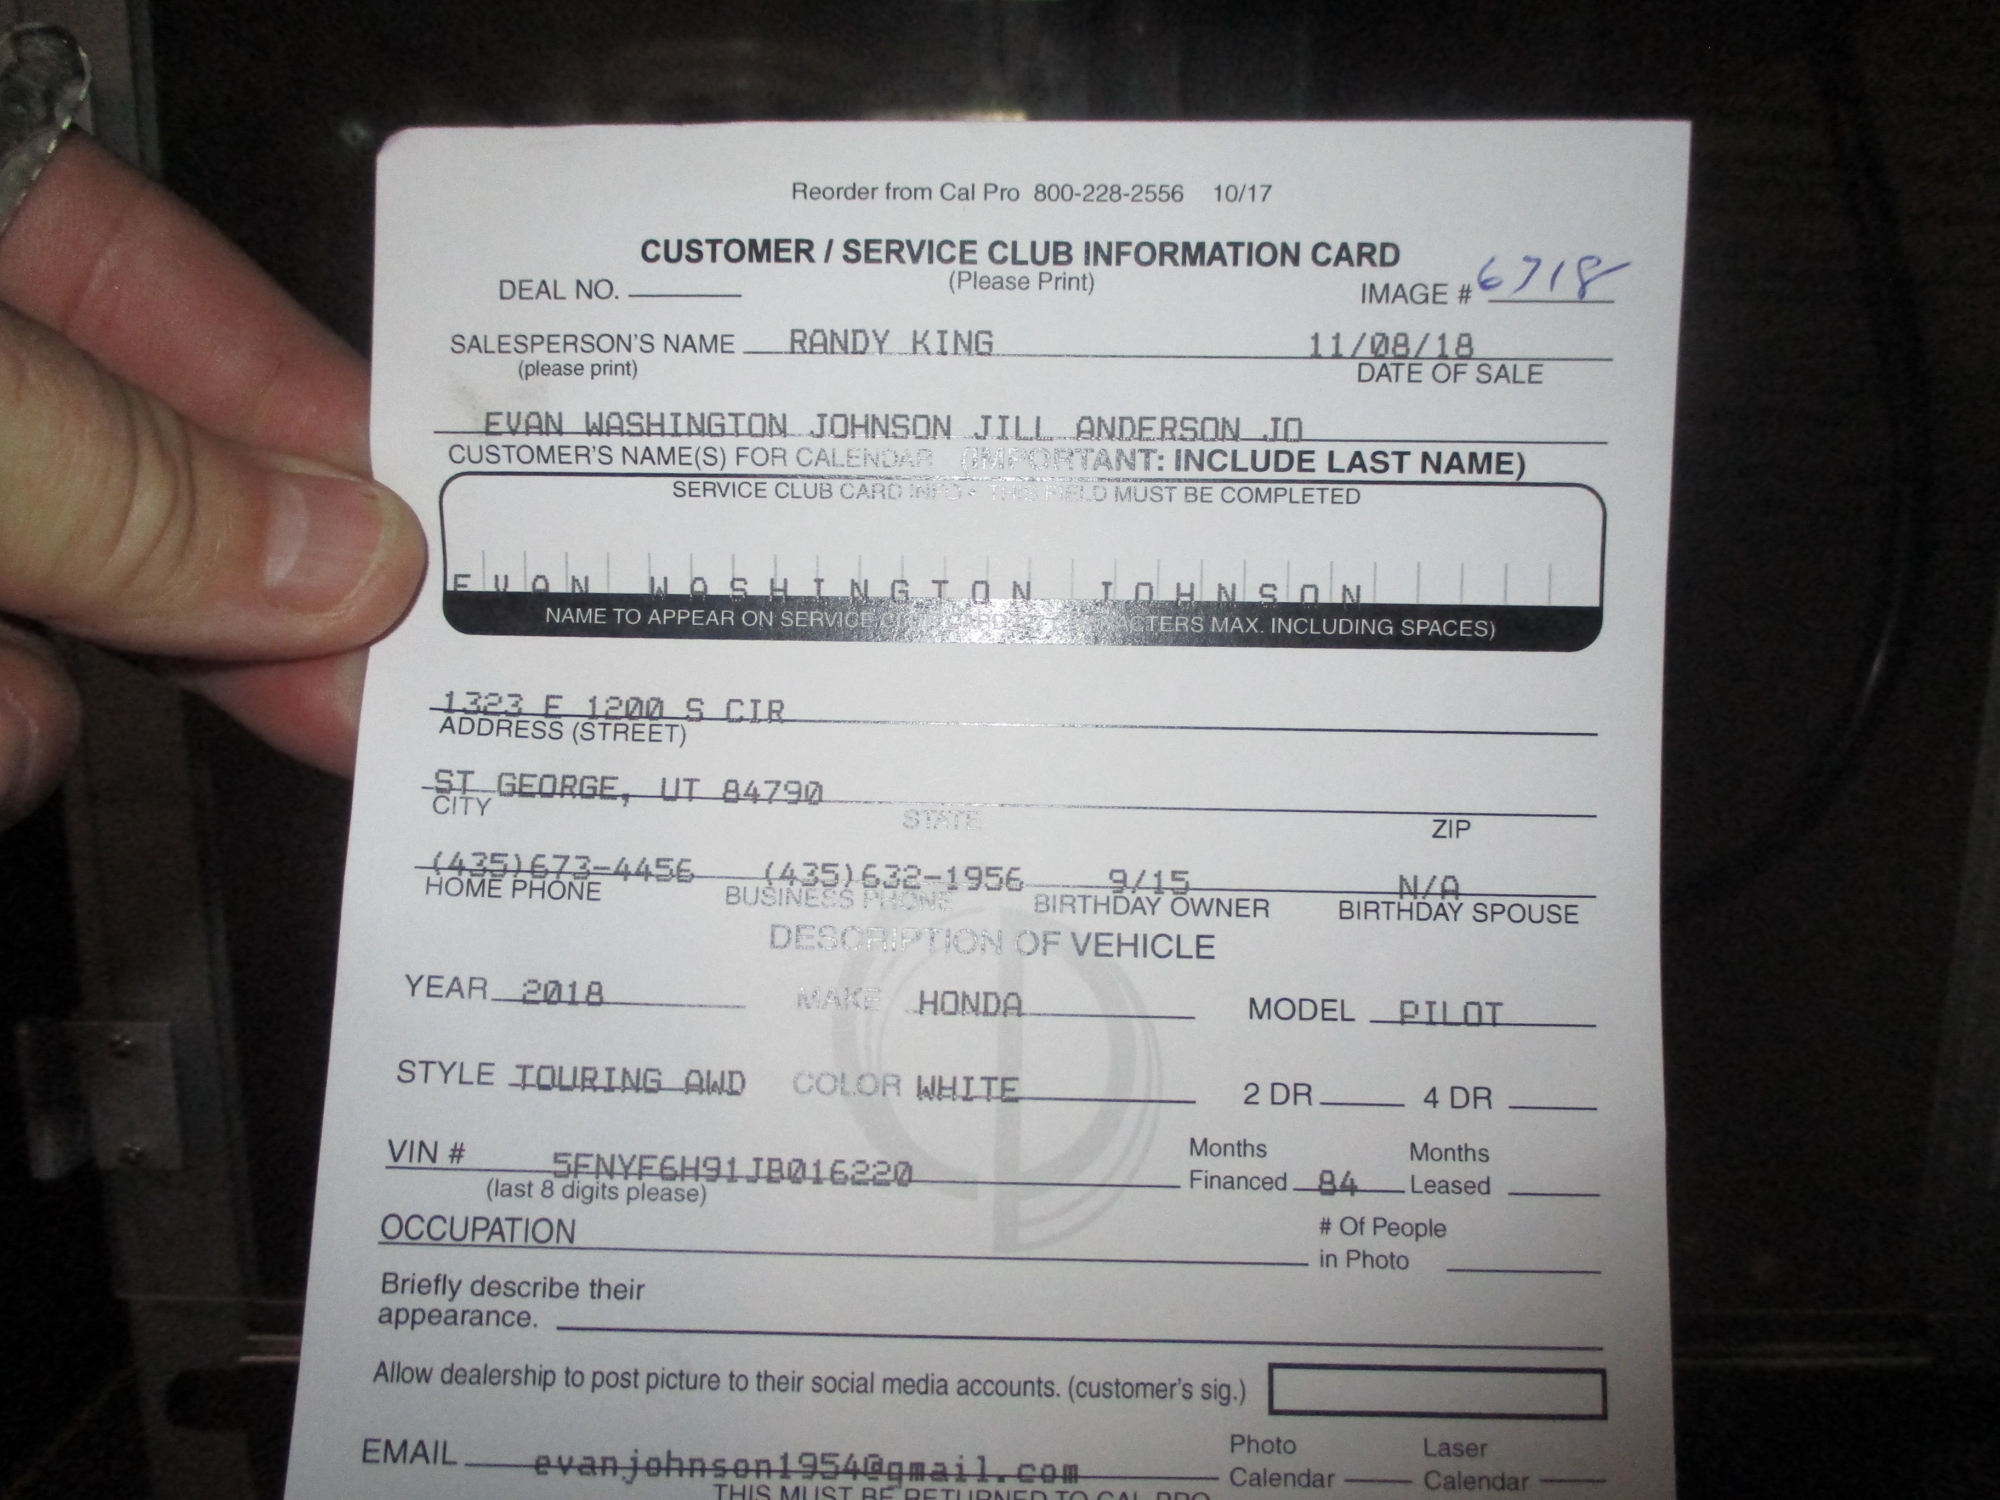 Reorder from Cal Pro 800-228-2556 10/17
CUSTOMER / SERVICE CLUB INFORMATION CARD
(Please Print)
DEAL NO. IMAGE # 6718
SALESPERSON'S NAME RANDY KING 11/08/18
(please print) DATE OF SALE
EVAN WASHINGTON JOHNSON JILL ANDERSON JO
CUSTOMER'S NAME(S) FOR CALENDAR (IMPORTANT: INCLUDE LAST NAME)
SERVICE CLUB CARD INFO - THIS FIELD MUST BE COMPLETED
EVAN WASHINGTON JOHNSON
NAME TO APPEAR ON SERVICE CLUB CARD CHARACTERS MAX. INCLUDING SPACES)
1323 E 1200 S CIR
ADDRESS (STREET)
ST GEORGE, UT 84790
CITY STATE ZIP
(435)673-4456 (435)632-1956 9/15 N/A
HOME PHONE BUSINESS PHONE BIRTHDAY OWNER BIRTHDAY SPOUSE
DESCRIPTION OF VEHICLE
YEAR 2018 MAKE HONDA MODEL PILOT
STYLE TOURING AWD COLOR WHITE 2 DR 4 DR
VIN # 5FNYF6H91JB016220 Months Financed 84 Months Leased
(last 8 digits please)
OCCUPATION # Of People in Photo
Briefly describe their
appearance.
Allow dealership to post picture to their social media accounts. (customer's sig.)
EMAIL evanjohnson1954@gmail.com Photo Calendar Laser Calendar
THIS MUST BE RETURNED TO CAL PRO